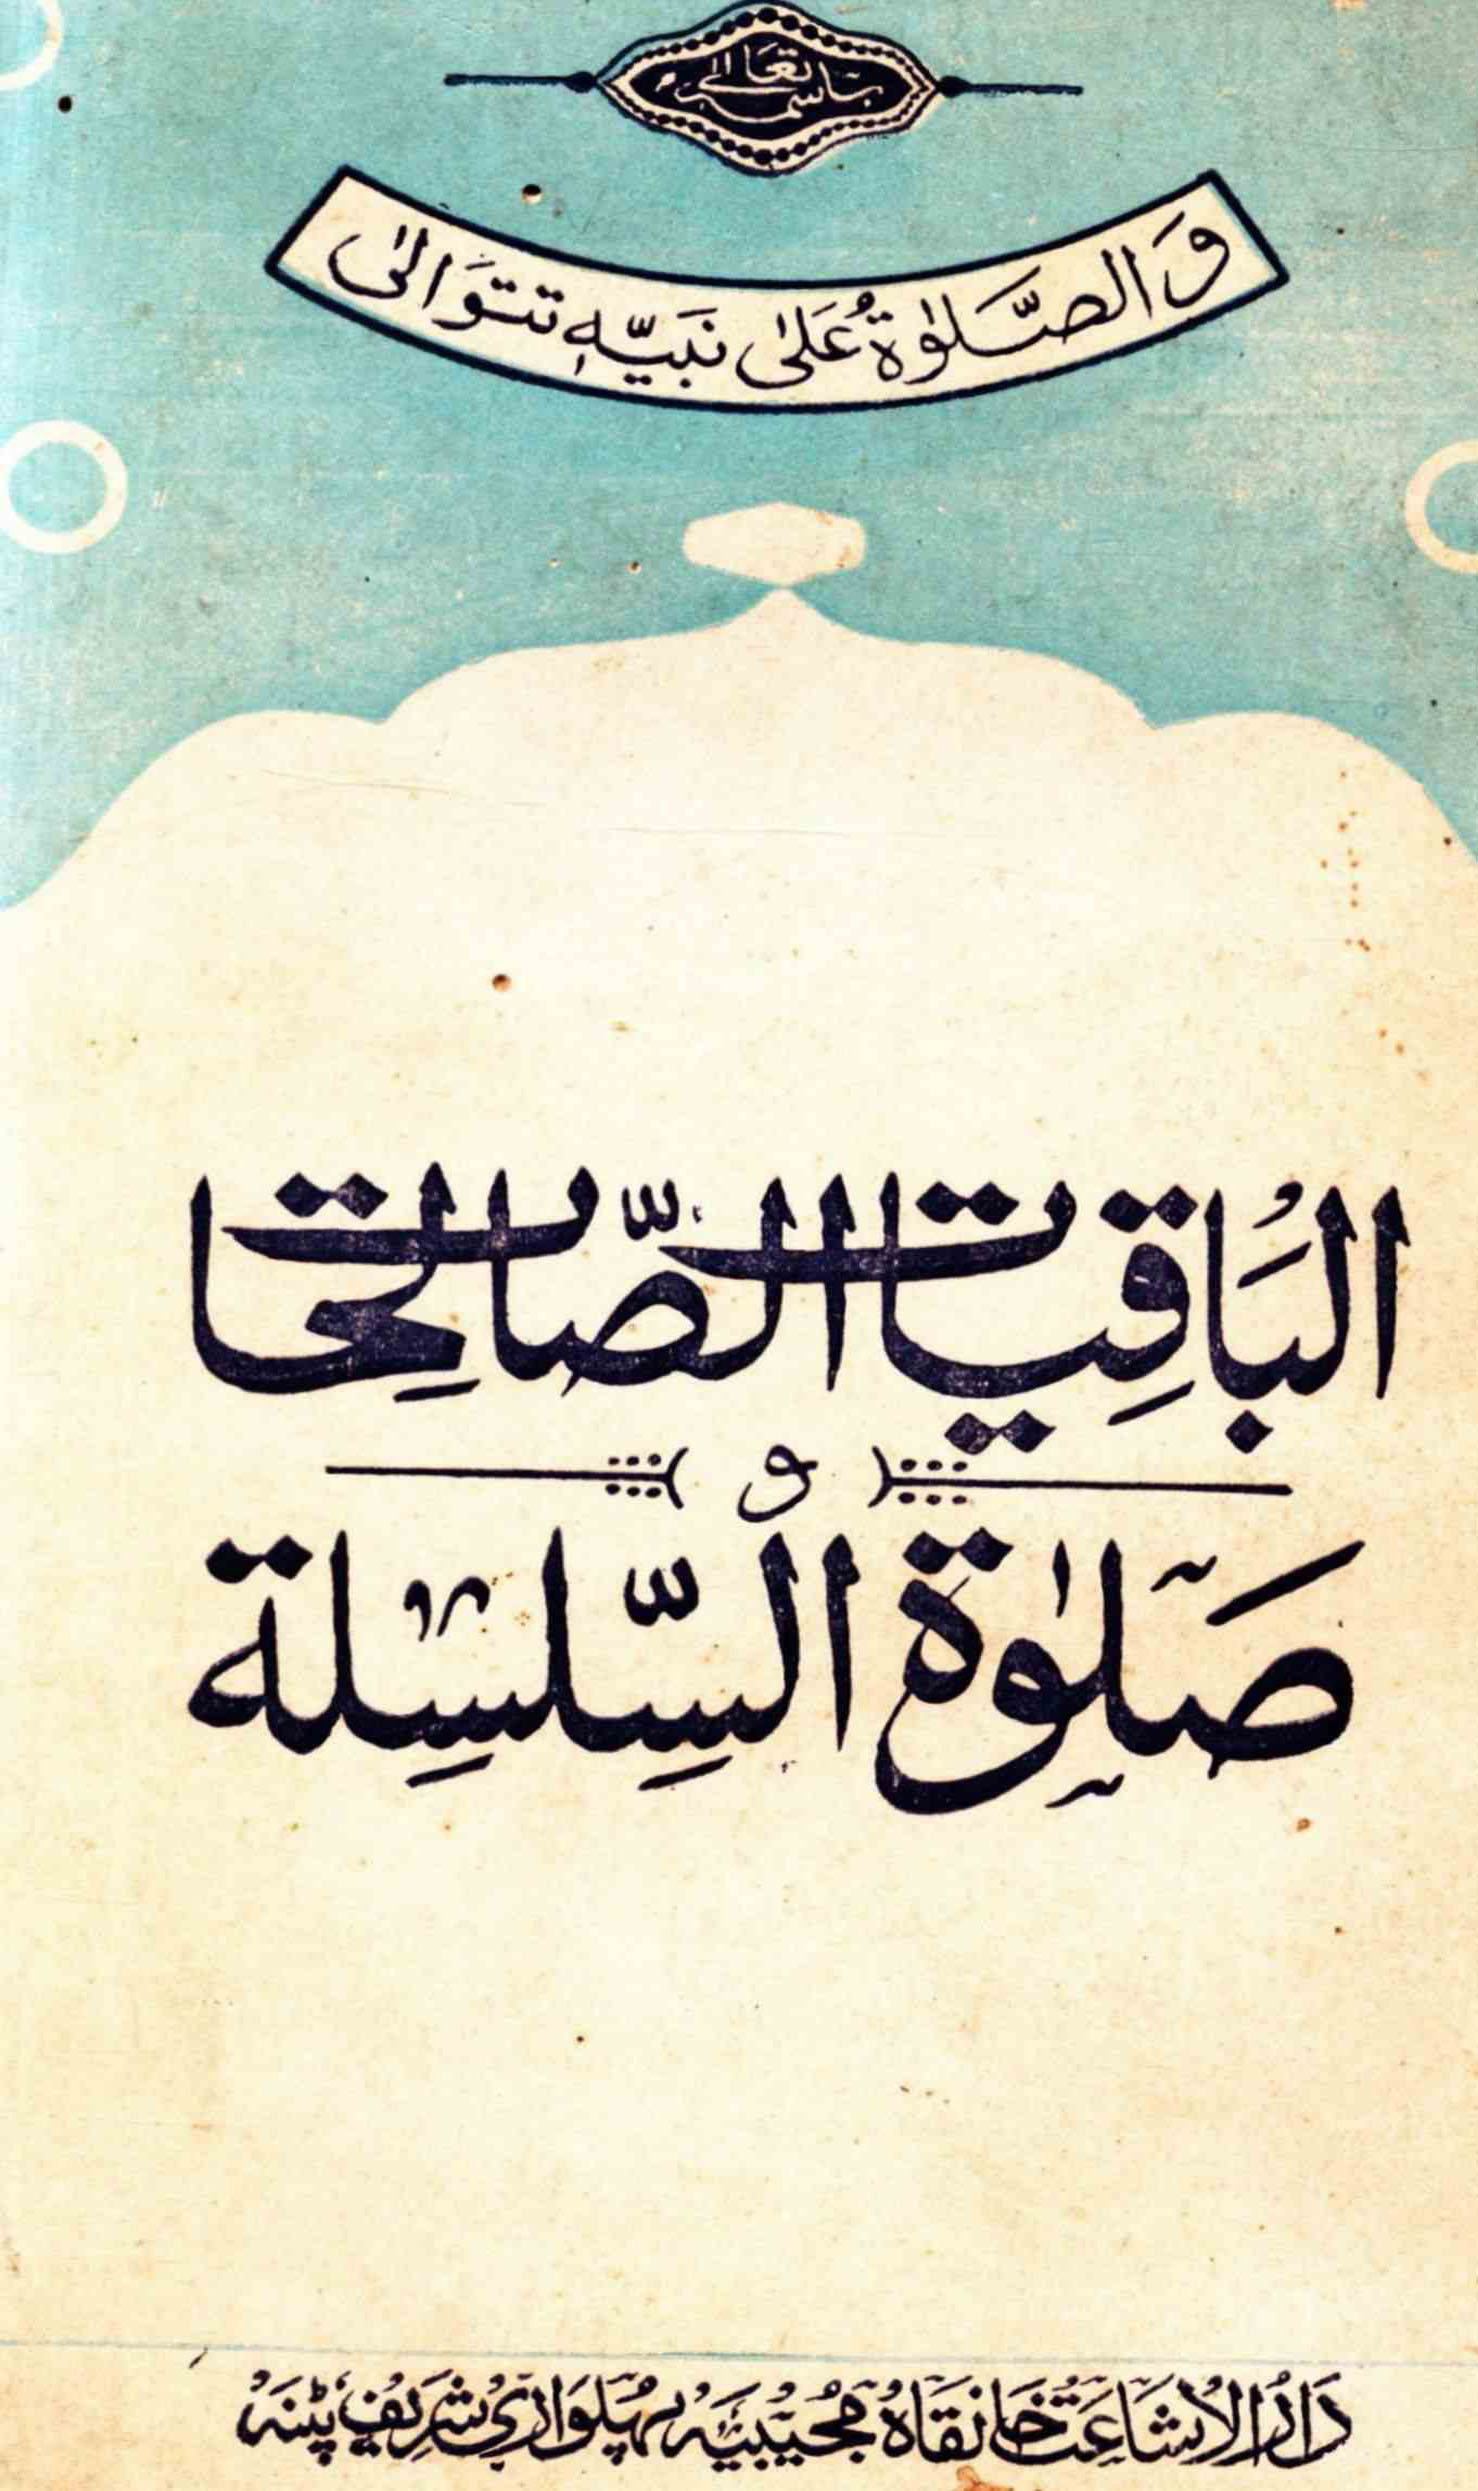 باسمہ تعالیٰ
وَالصَّلوٰةُ عَلىٰ نَبِيِّهٖ تتوَالىٰ
البَاقِيات الصَّالِحَات
و
صَلوٰة السِّلسِلة
دَارُ الاْشَاعَتْ خَانقَاهْ مُجُيْبِيَهْ پهُلوَارِيْ شَرِيْفْ پٹنَهْ